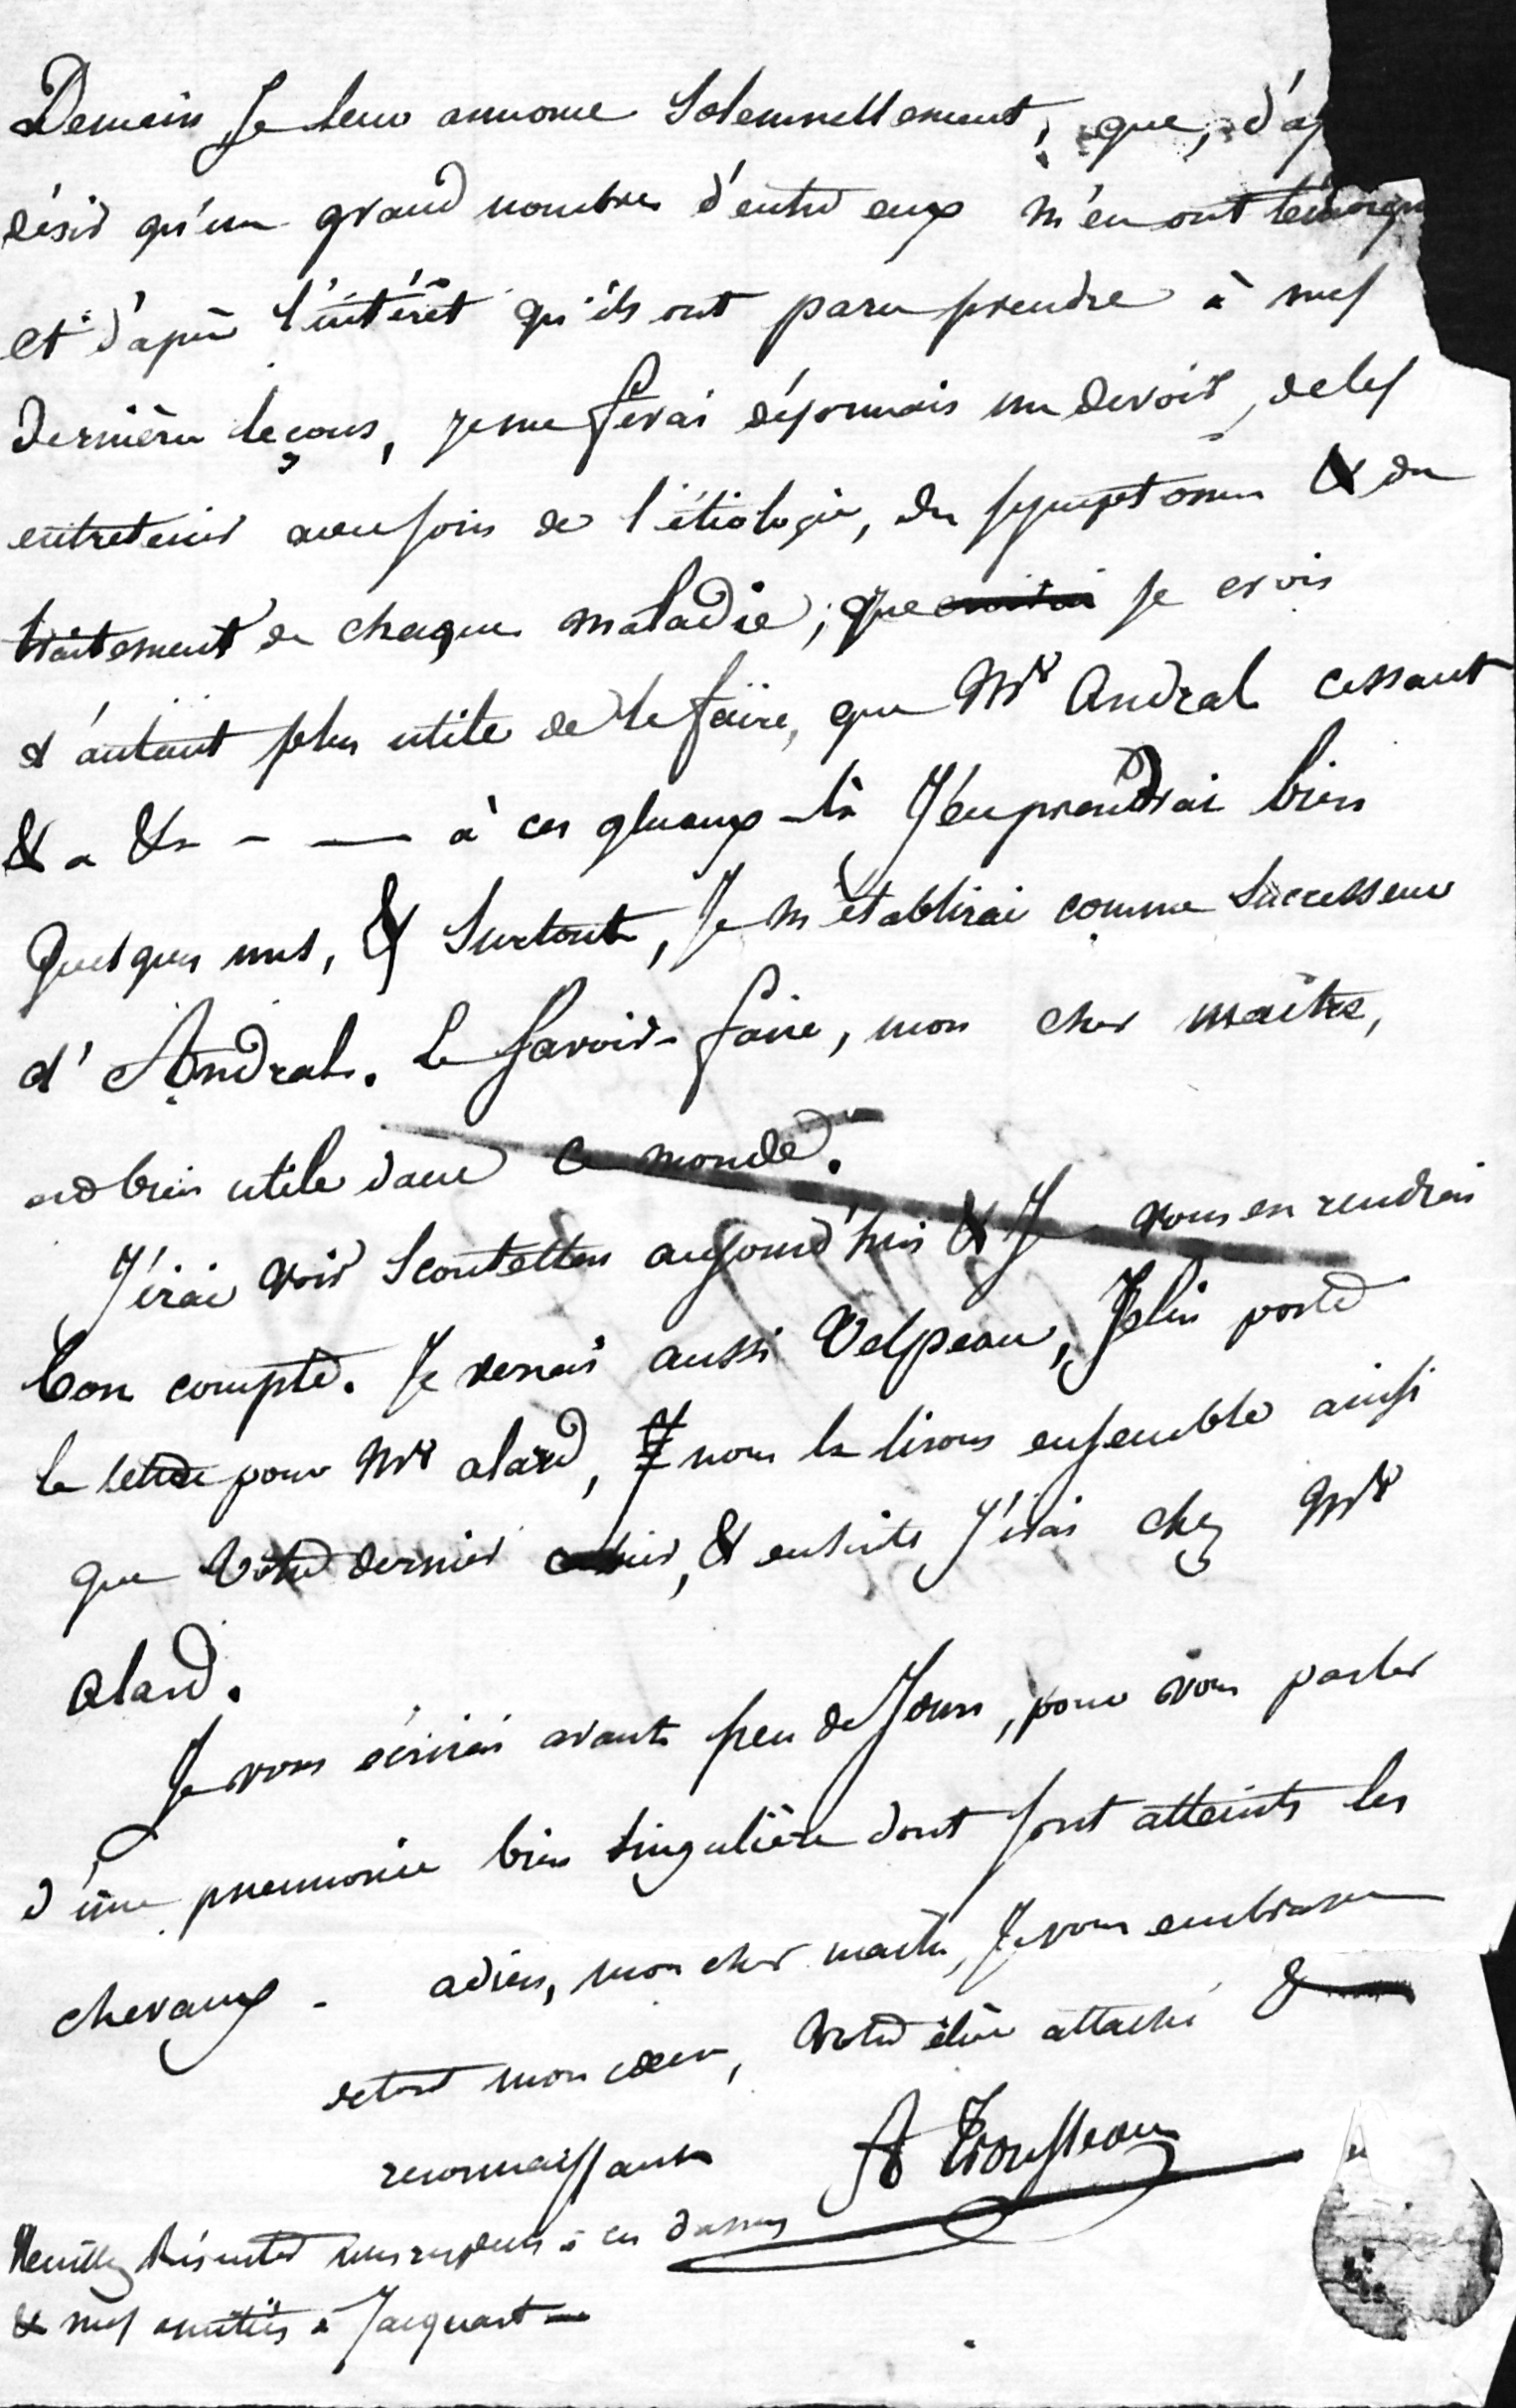 Demain Je leur annonce Solemnellement, que, d'ap
désir qu'un grand nombre d'entre eux m'en ont témoign
et d'après l'intérêt qu'ils ont paru prendre à mes
dernières leçons, je me ferai désormais un devoir, de les
entretenir avec soin de l'étiologie, des symptomes & du
traitement de chaque maladie; que je crois
d'autant plus utile de le faire, que Mr Andral cessant
& a &a - — à ces gluaux-là J'en prendrai bien
quelques uns, & Surtout, Je m'établirai comme Successeur
d'Andral. Le Savoir-faire, mon cher maître,
est bien utile dans ce monde.
J'irai voir Scoutetten aujourd'hui & Je vous en rendrai
bon compte. Je verrai aussi Velpeau, Je lui porte
la lettre pour Mr alard, nous la lirons ensemble ainsi
que Votre dernier, & ensuite J'irai chez Mr
alard.
Je vous écrirai avant peu de Jours, pour vous parler
d'une pneumonie bien Singulière dont sont atteints les
chevaux - adieu, mon cher maître, Je vous embrasse
de tout mon coeur, Votre élève attaché &
reconnaissant A Trousseau
Veuillez Présenter mes respects à ces dames
& mes amitiés à Jacquart —